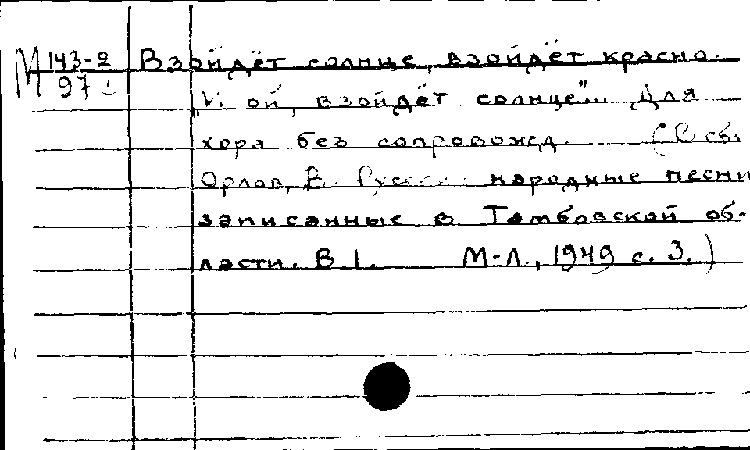 М 143-2 Взойдёт солнце, взойдёт красно.
97
„И ой, взойдёт солнце"... Для
хора без сопровожд. (В сб.
Орлов, В. Русские народные песни
записанные в Тамбовской об-
ласти. В 1. М-Л., 1949 с. 3.)